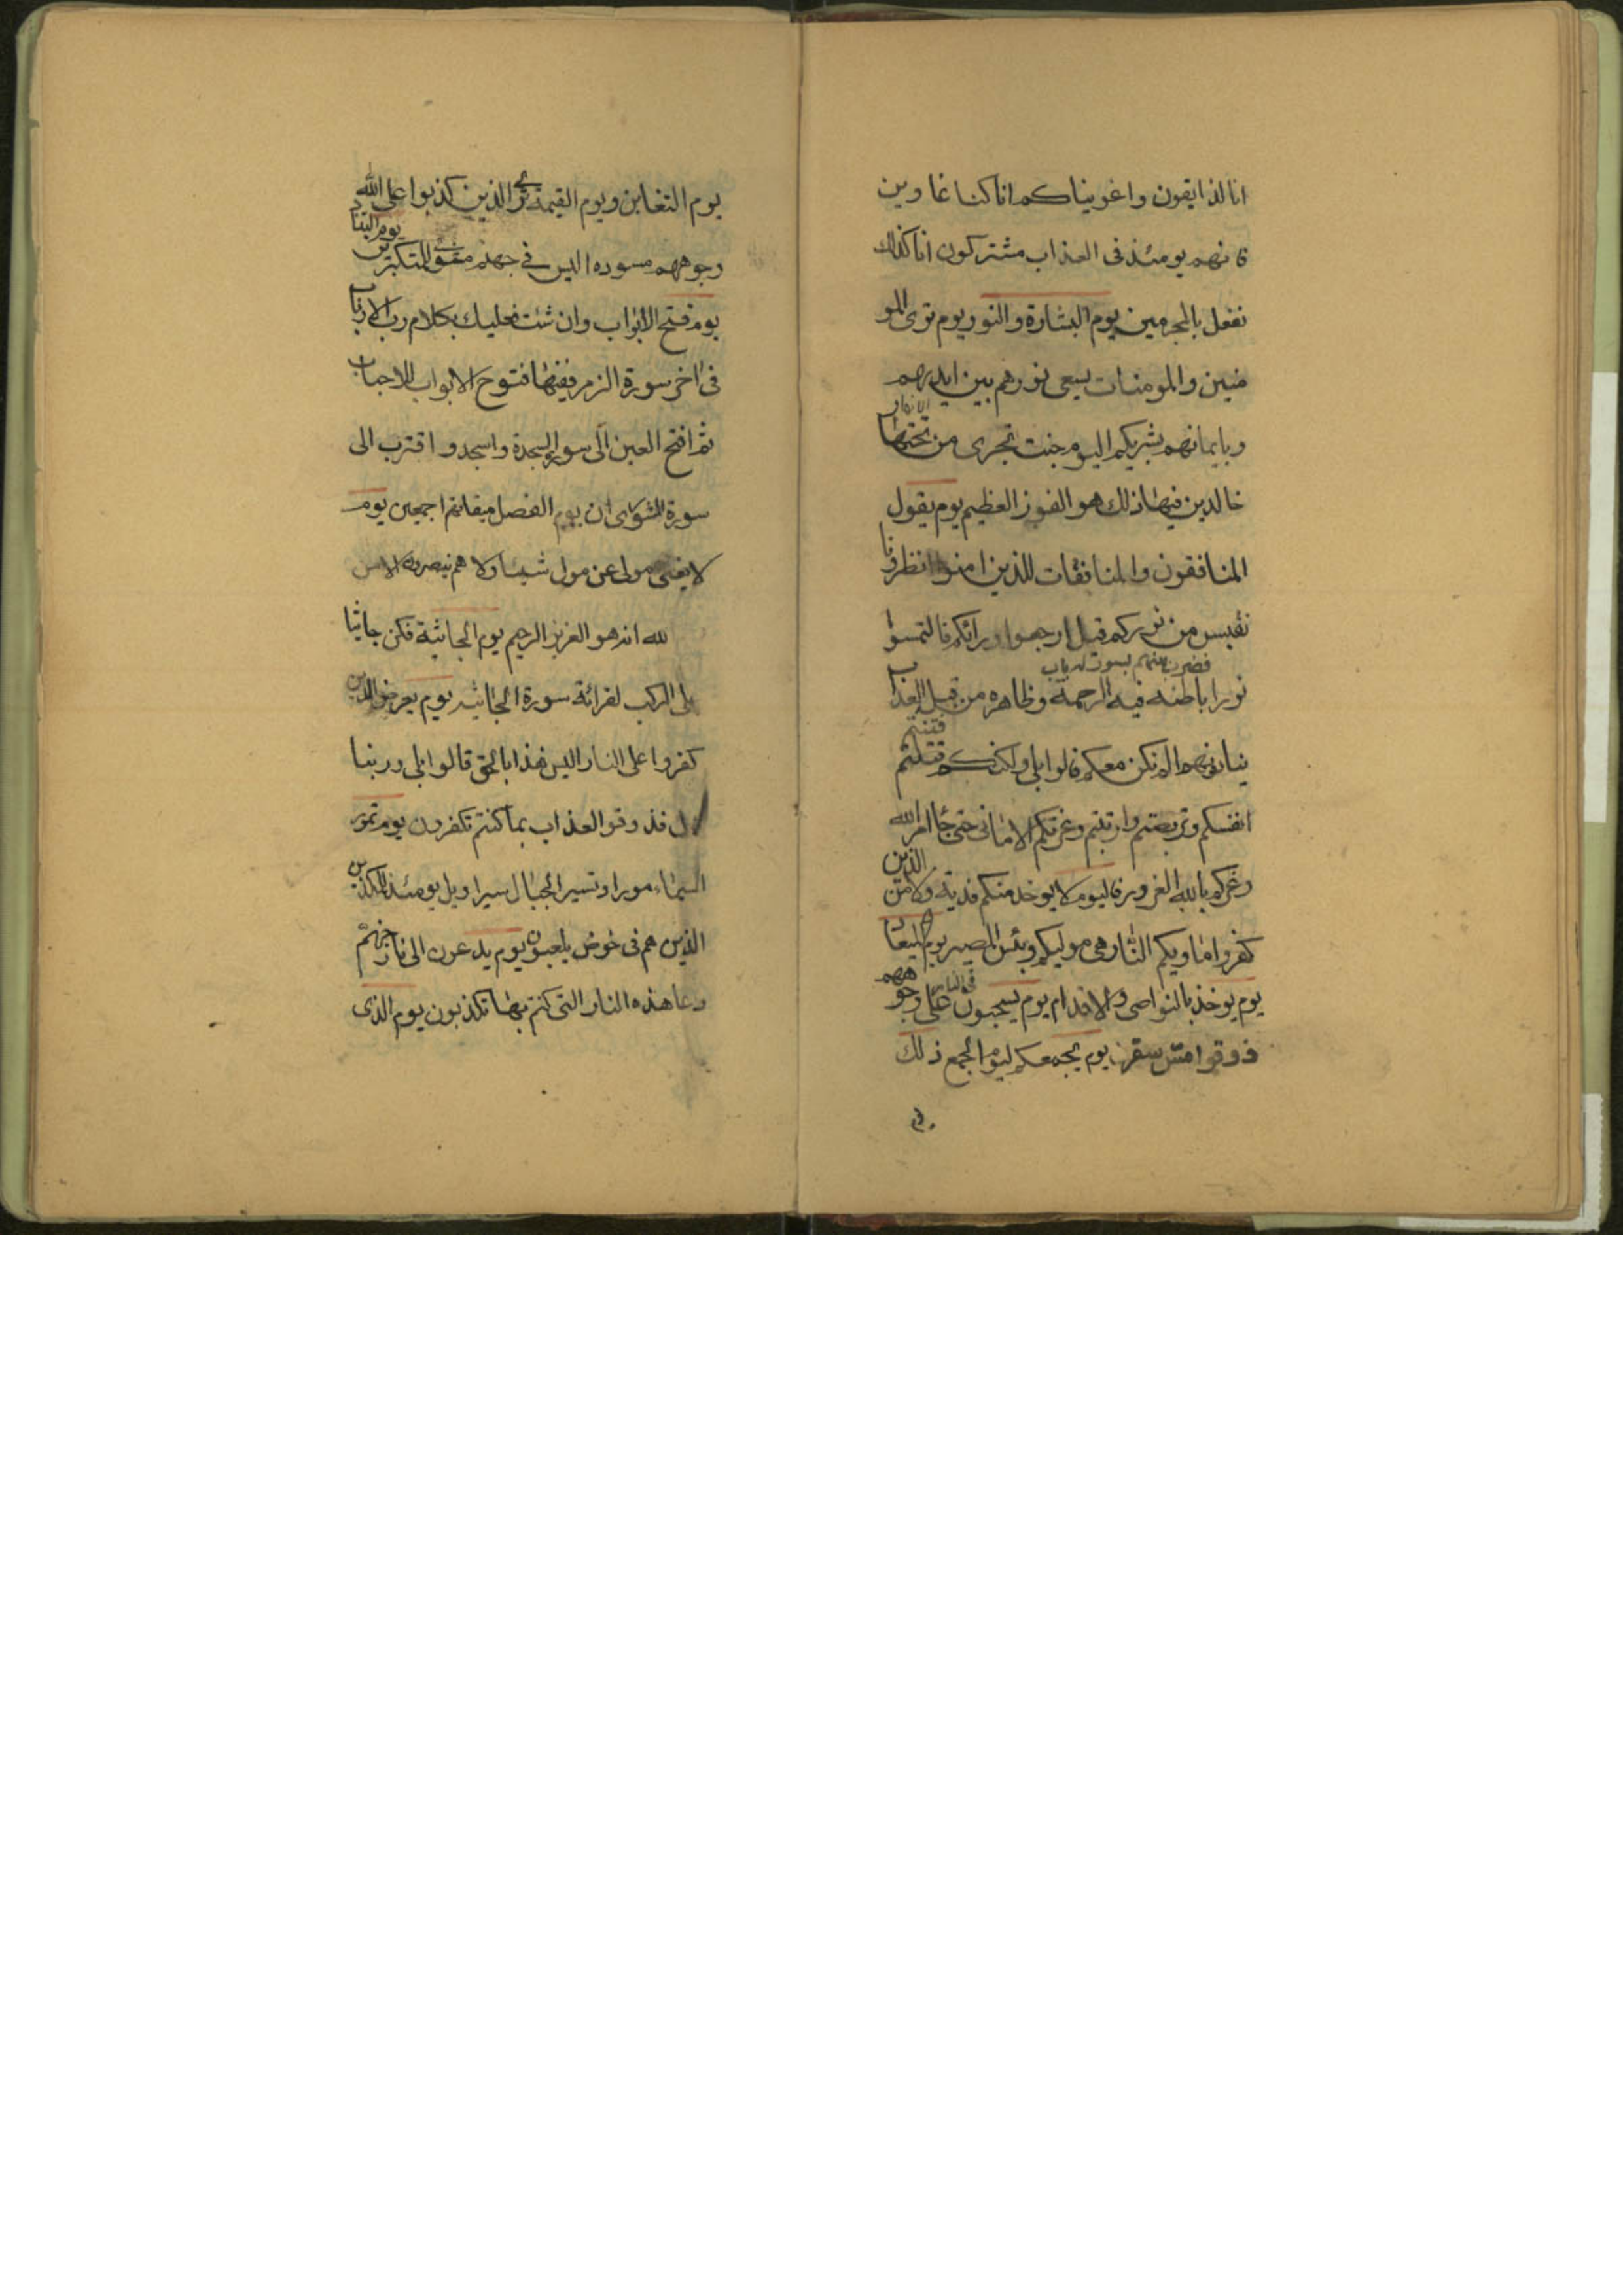 انا لذايقون واغويناكم انا كنا غاوين
فانهم يومئذ فى العذاب مشتركون انا كذلك
نفعل بالمجرمين يوم البشارة والنور يوم ترى المو
منين والمومنات يسعى نورهم بين ايديهم
وبايمانهم بشريكم اليوم جنت تجرى من تحتها الانهار
خالدين فيها ذلك هو الفوز العظيم يوم يقول
المنافقون والمنافقات للذين امنوا انظرونا
نقبس من نوركم قيل ارجعوا ورائكم فالتمسوا
نورا فضرب بينهم بسور له باب باطنه فيه الرحمة وظاهره من قبله العذاب
ينادونهم الم نكن معكم قالوا بلى ولكنكم فتنتم
انفسكم وتربصتم وارتبتم وغرتكم الامانى حتى جاء امر الله
وغركم بالله الغرور فاليوم لا يوخذ منكم فدية ولا من الذين
كفروا ماويكم النار هى موليكم وبئس المصير يوم
يوم يوخذ بالنواصى والاقدام يوم يسحبون فى النار على وجوههم
ذوقوا مس سقر يوم يجمعكم ليوم الجمع ذلك
يوم التغابن ويوم القيمة ترى الذين كذبوا على الله
وجوههم مسوده اليس في جهنم مثوى للمتكبرين يوم التناد
يوم فتح الابواب وان شئت فعليك بكلام رب الارباب
فى اخر سورة الزمر ففيها فتوح الابواب للاحباب
ثم افتح العين الى سورة السجدة واسجد واقترب الى
سورة الشورى ان يوم الفصل ميقاتهم اجمعين يوم
لا يغنى مولى عن مولى شيئا ولا هم ينصرون الا من
الله انه هو العزيز الرحيم يوم الجاثية فكن جاثيا
على الركب لقرائة سورة الجاثيه يوم يعرض الذين
كفروا على النار اليس هذا بالحق قالوا بلى وربنا
قال فذوقوا العذاب بما كنتم تكفرون يوم تمور
السماء مورا وتسير الجبال سيرا ويل يومئذ للمكذبين
الذين هم فى خوض يلعبون يوم يدعون الى نار جهنم
دعا هذه النار التى كنتم بها تكذبون يوم الذى